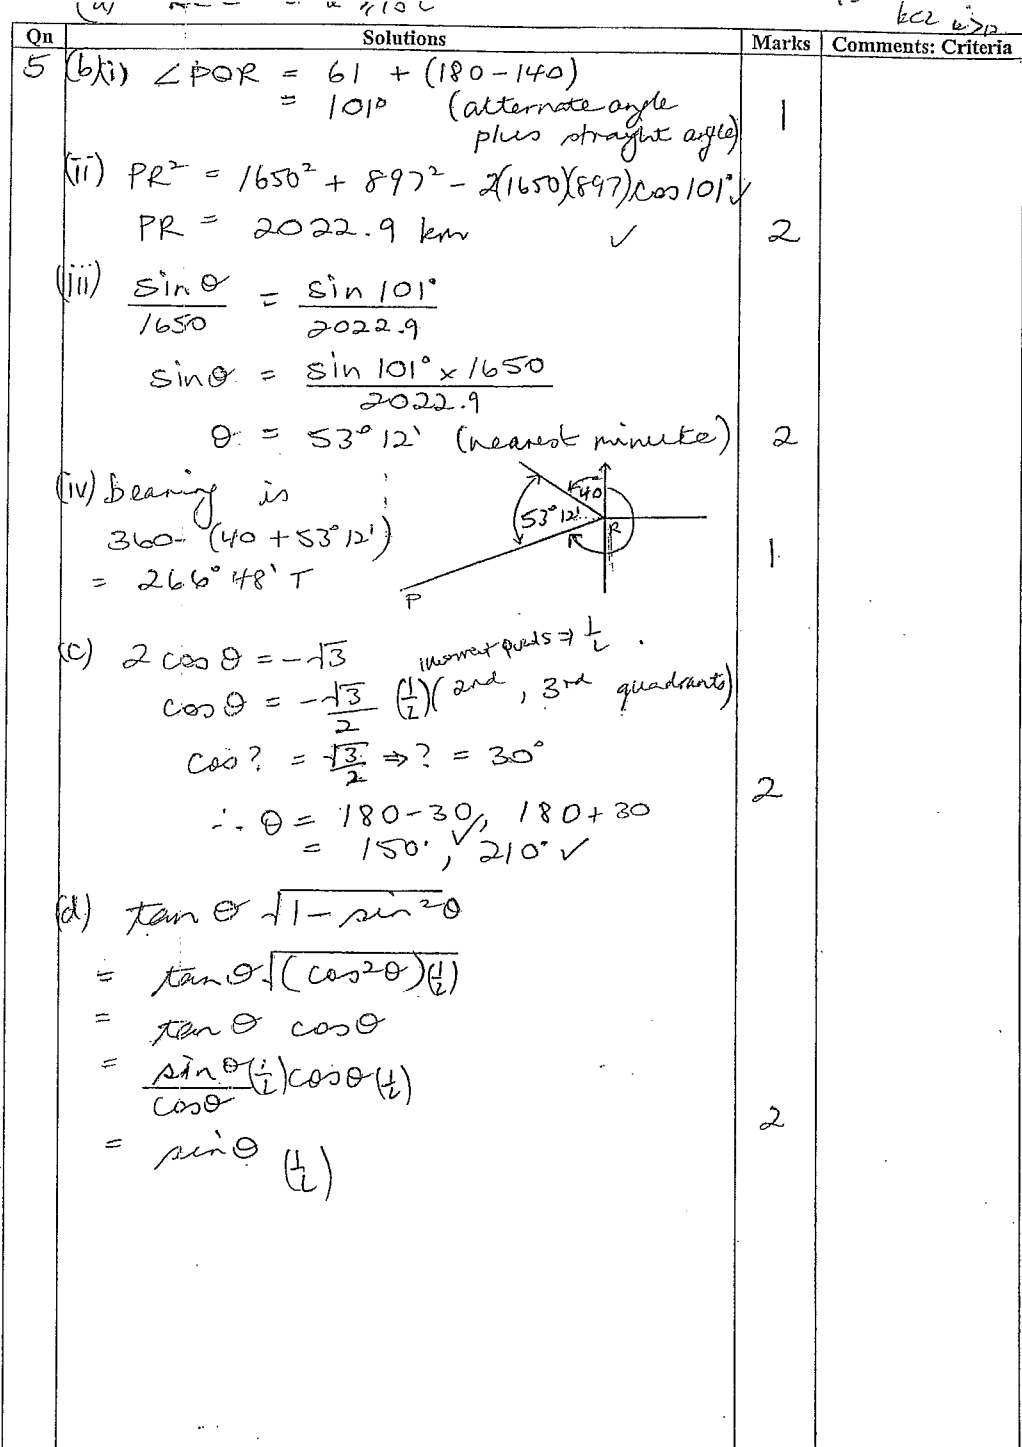 Qn Solutions Marks Comments: Criteria
5 (b)(i) ∠PQR = 61 + (180 - 140)
= 101° (alternate angle
plus straight angle) 1
(ii) PR² = 1650² + 897² - 2(1650)(897)cos101° ✓
PR = 2022.9 km ✓ 2
(iii) sin θ / 1650 = sin 101° / 2022.9
sin θ = sin 101° × 1650 / 2022.9
θ = 53° 12' (nearest minute) 2
(iv) bearing is
360 - (40 + 53° 12')
= 266° 48' T 1
40
53° 12'
R
P
(c) 2 cos θ = -√3 incorrect quads ⇒ 1/2
cos θ = -√3/2 (1/2) (2nd, 3rd quadrants)
cos ? = √3/2 ⇒ ? = 30°
2
∴ θ = 180 - 30, 180 + 30
= 150° ✓, 210° ✓
(d) tan θ √(1 - sin²θ)
= tan θ √((cos²θ)(1/2))
= tan θ cos θ
= sin θ / cos θ (1/2) cos θ (1/2)
2
= sin θ (1/2)